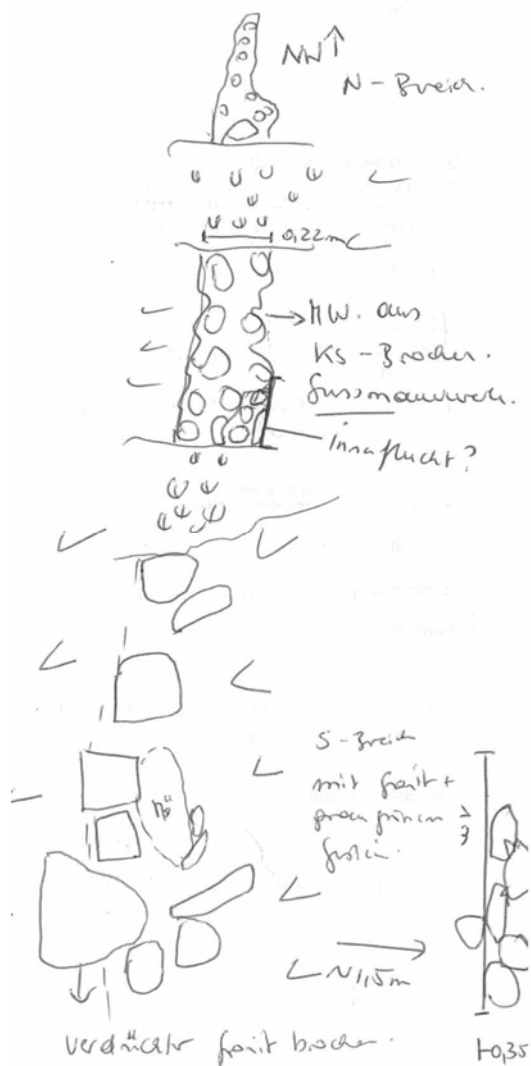 NW ↑
N-Breich.
0,22m
→ MW. aus
KS-Brocken.
Gussmauerwerk.
Innaflucht?
S-Breich
mit Granit +
Gestein.
Mö
~1,5m
verdrückter Granit brocken.
0,35